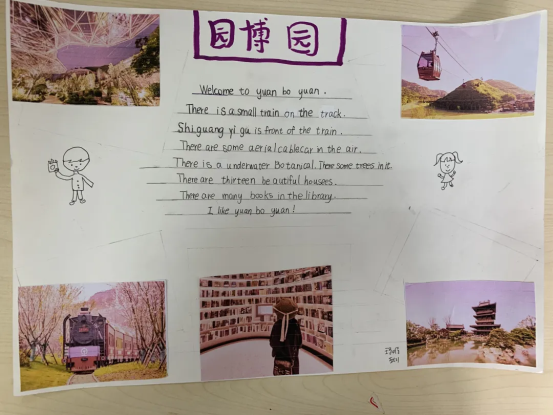 园博园
Welcome to yuan bo yuan.
There is a small train on the track.
Shiguang yi gu is front of the train.
There are some aerial cable car in the air.
There is a underwater Botanical. There some trees in it.
There are thirteen beautiful housers.
There are many books in the library.
I like yuan bo yuan!